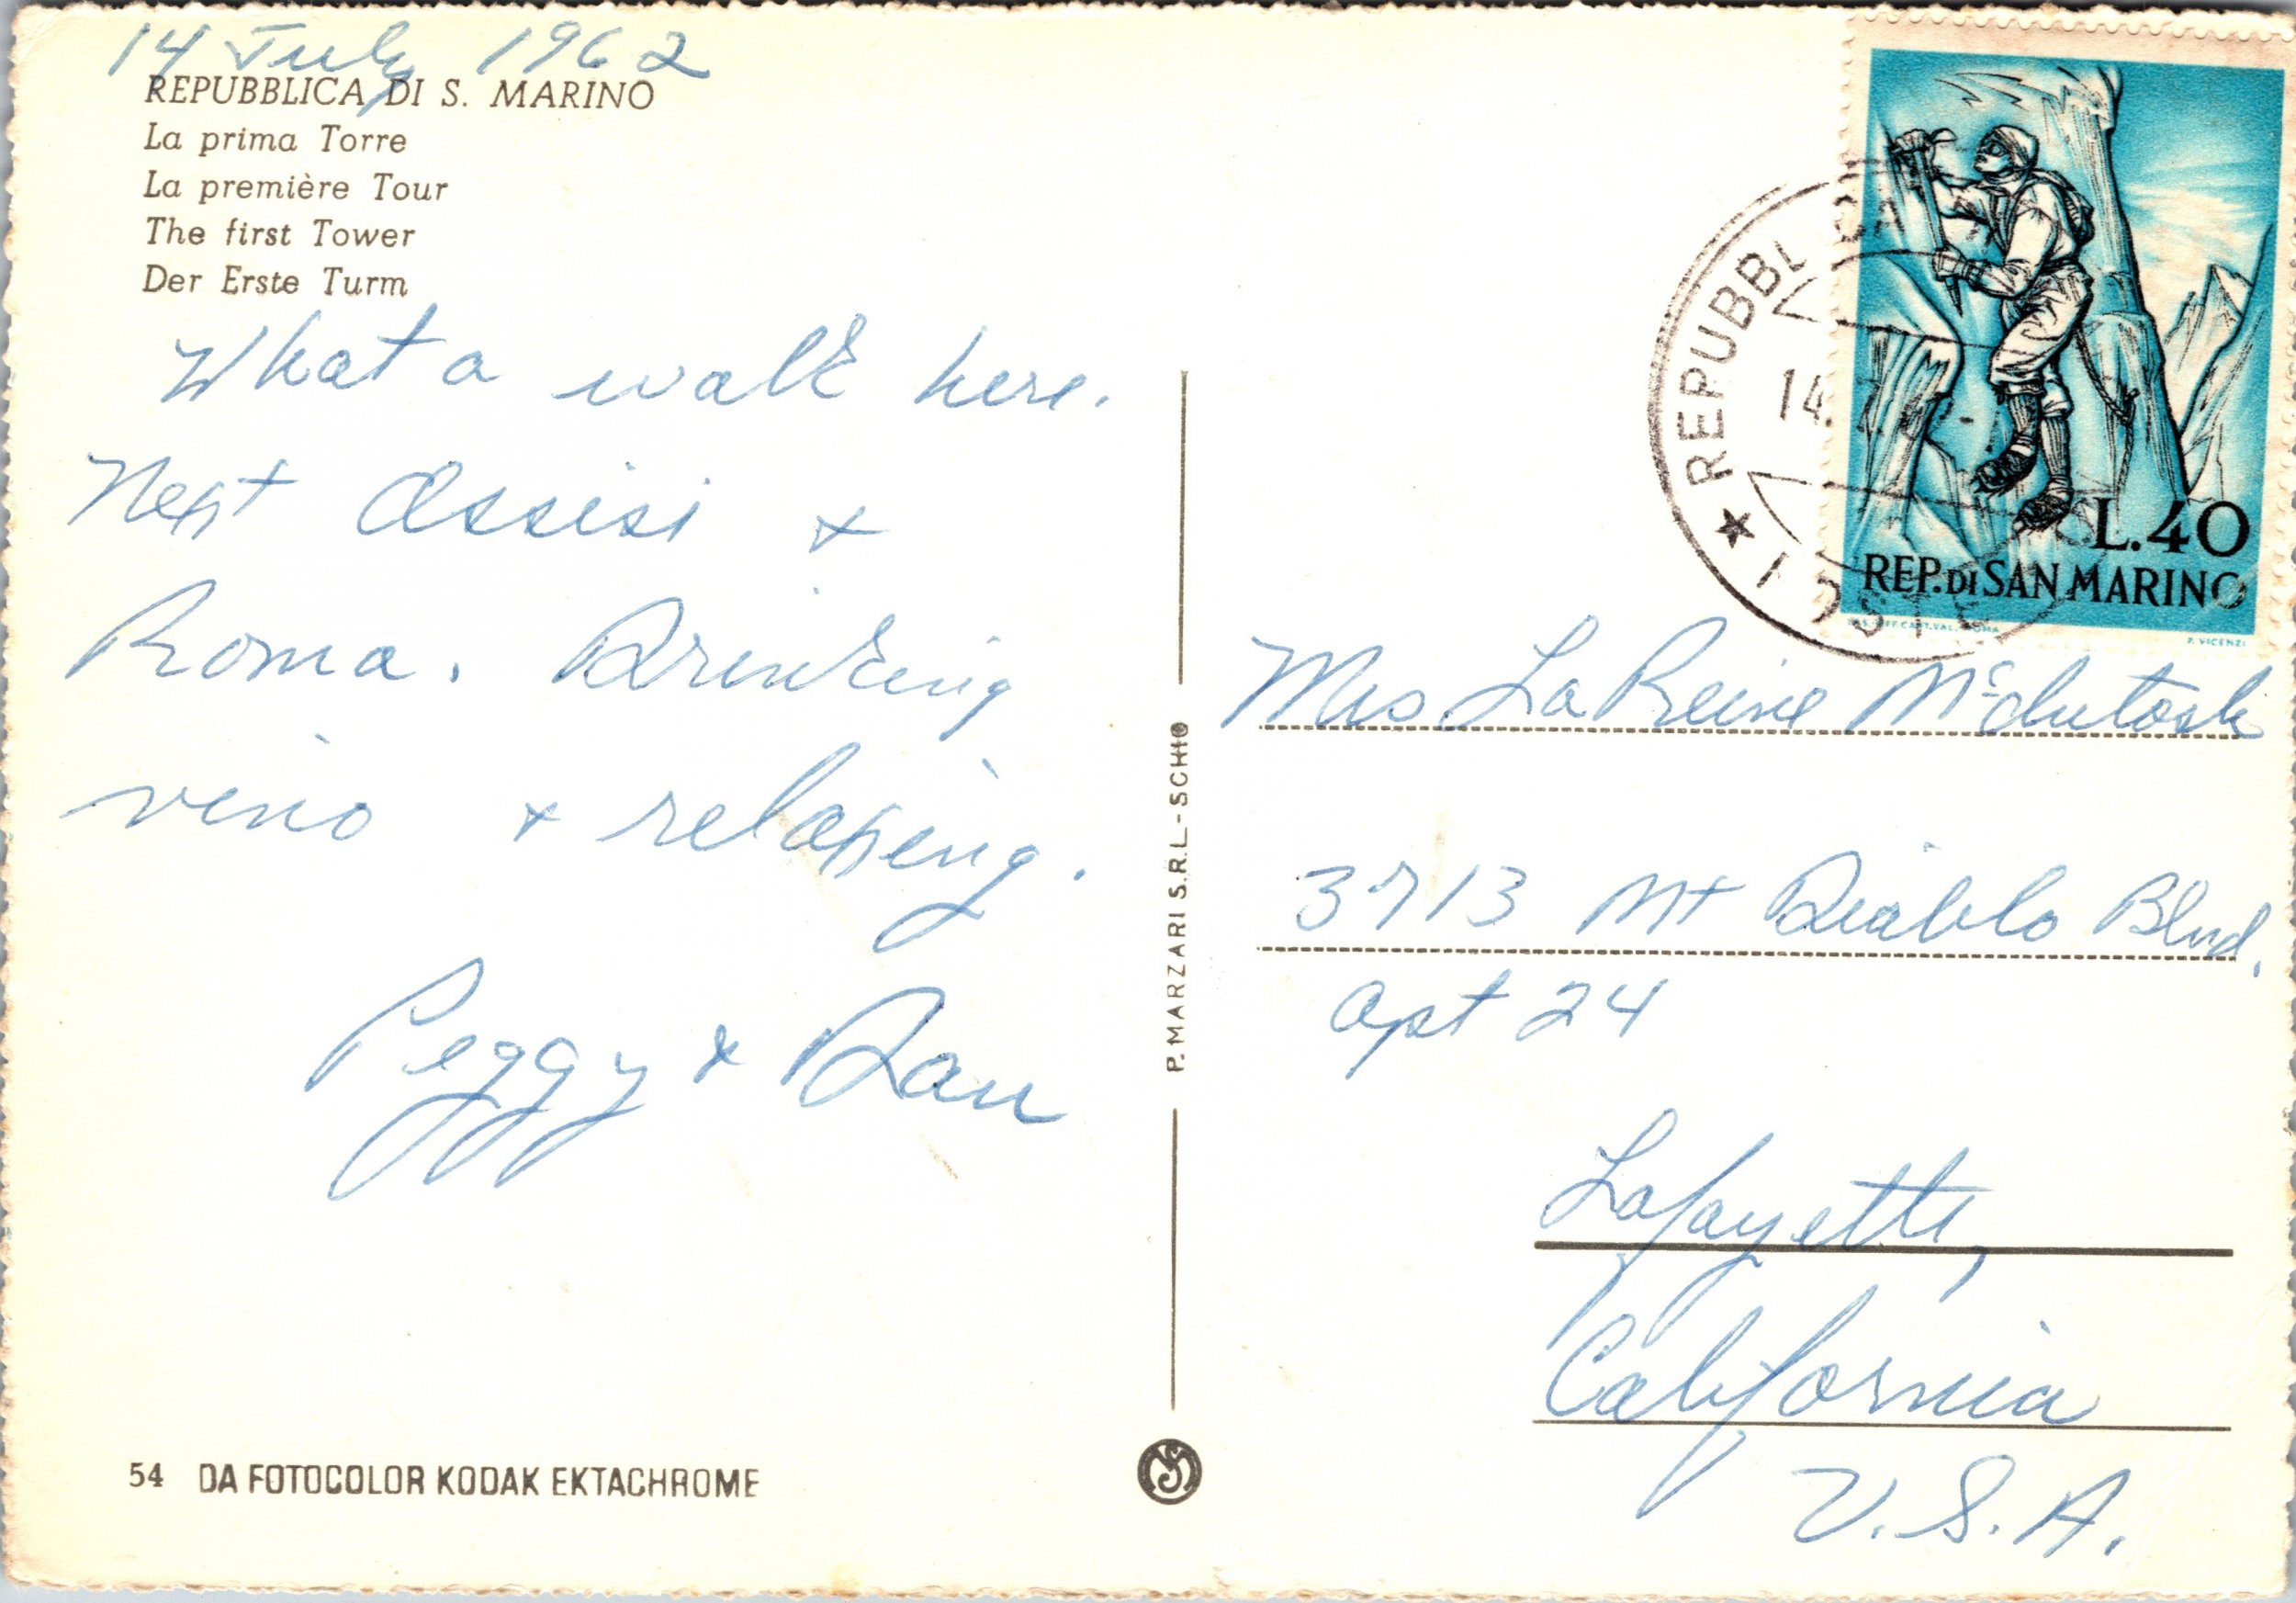 14 July 1962
REPUBBLICA DI S. MARINO
La prima Torre
La première Tour
The first Tower
Der Erste Turm
What a walk here.
Next Assisi +
Roma. Drinking
vino + relaxing.
Peggy + Dan
54 DA FOTOCOLOR KODAK EKTACHROME
P. MARZARI S.R.L. - SCHIO
REPUBBLICA
14
L.40
REP. DI SAN MARINO
P. VICENZI
Mrs LaReine McIntosh
3713 Mt Diablo Blvd.
Apt 24
Lafayette,
California
U.S.A.